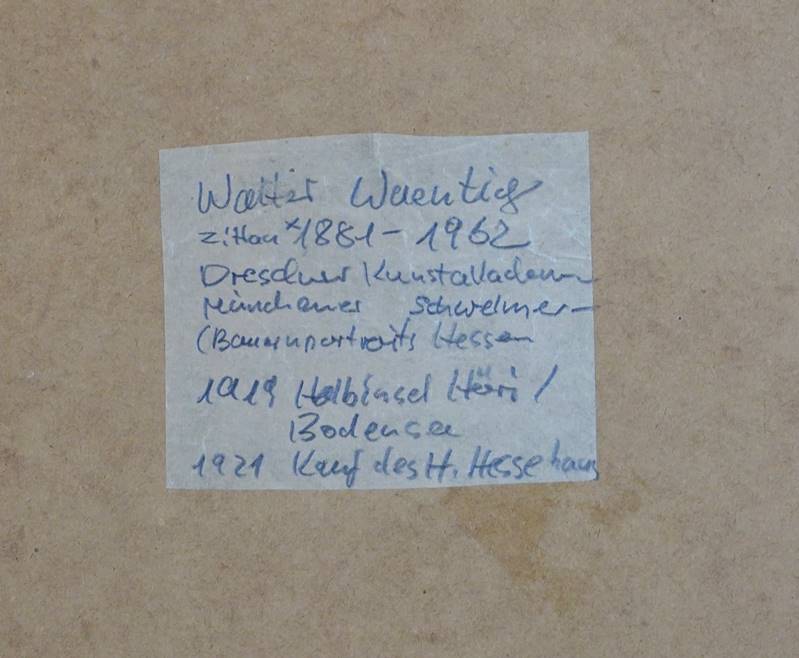 Walter Waentig
Zittau *1881 - 1962
Dresdner Kunstakadem
Münchener
(Bauernportraits Hessen
1919 Halbinsel Höri /
Bodensee
1921 Kauf des H. Hesse haus